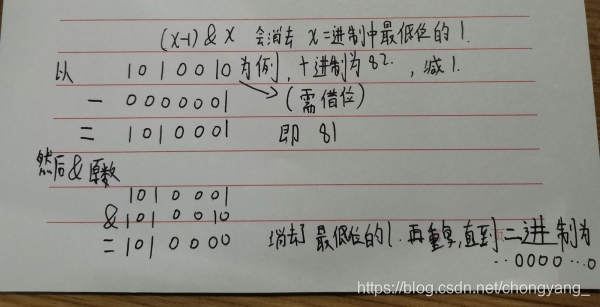 (x-1) & x 会消去 x 二进制中最低位的1.
以 1010010 为例, 十进制为82. , 减1.
- 0000001 (需借位)
= 1010001 即 81
然后& 原数
1010001
& 1010010
= 1010000 消去了最低位的1. 再重复,直到二进制为
..0000...0
https://blog.csdn.net/chongyang_